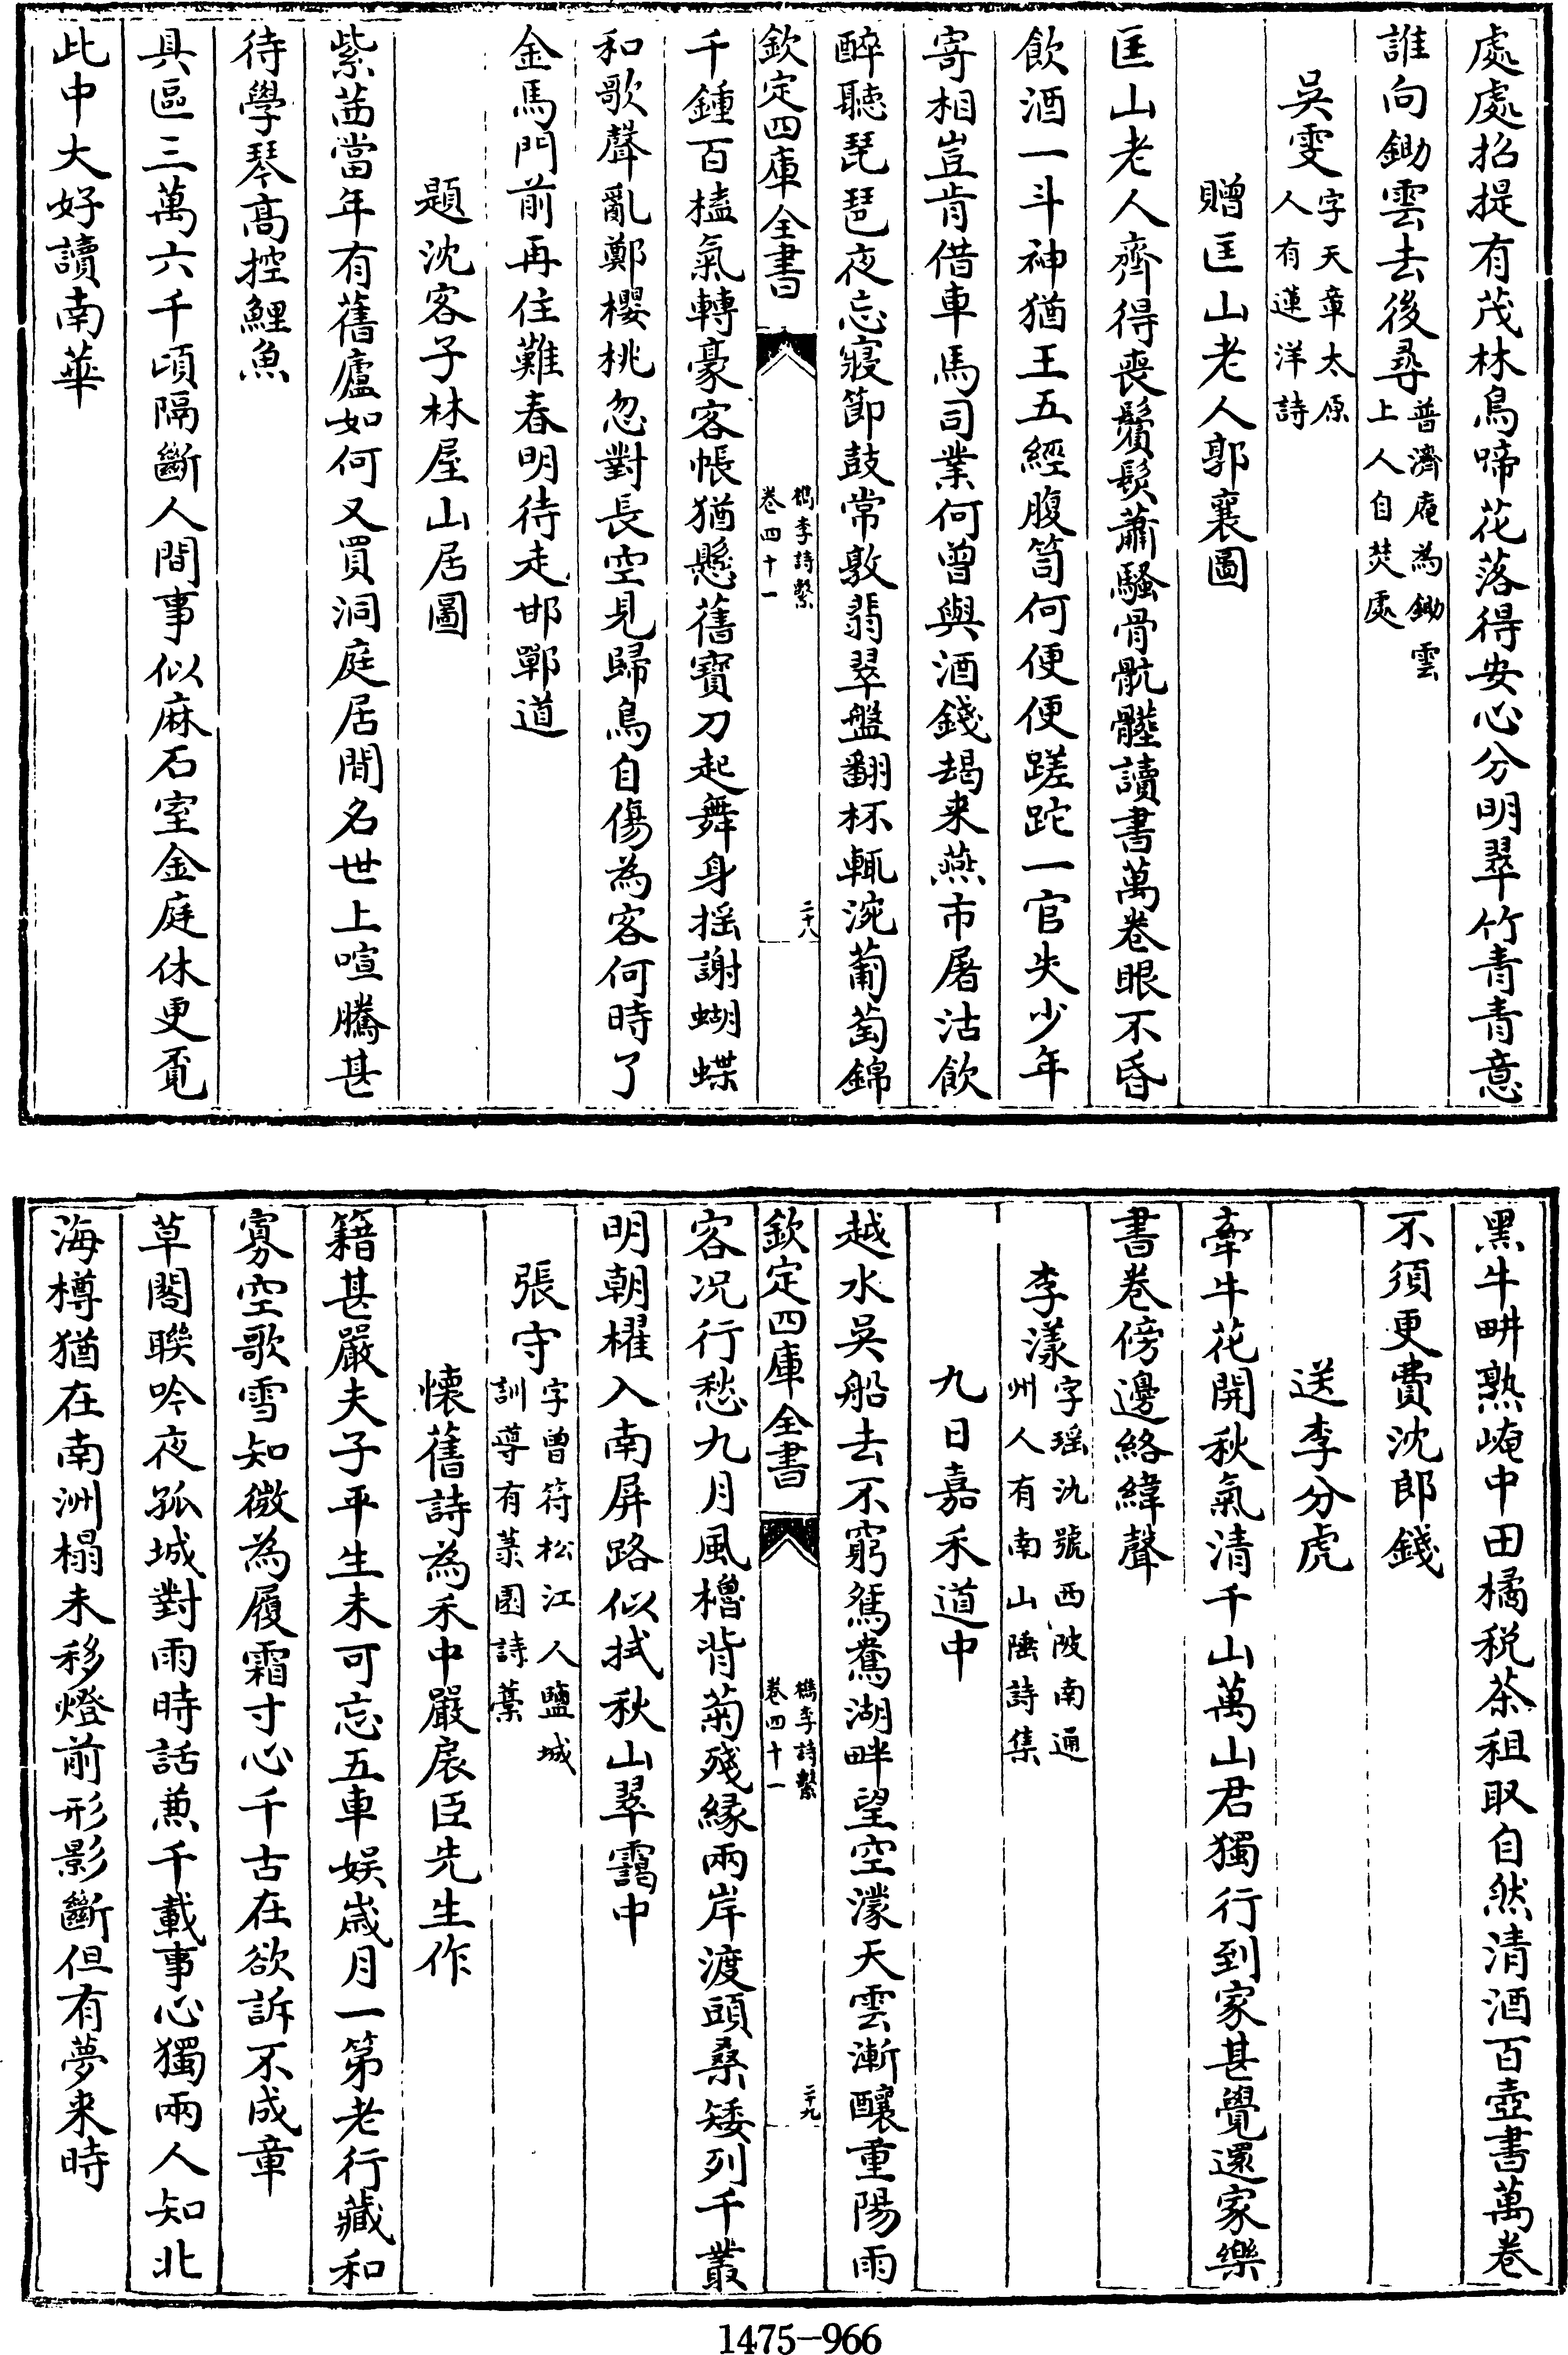 處處招提有茂林鳥啼花落得安心分明翠竹青青意
誰向鋤雲去後尋普濟庵為鋤雲上人自焚處
吳雯字天章太原人有蓮洋詩
贈匡山老人郭襄圖
匡山老人齊得喪鬢髮蕭騷骨骯髒讀書萬卷眼不昏
飲酒一斗神猶王五經腹笥何便便蹉跎一官失少年
寄相豈肯借車馬司業何曾與酒錢朅来燕市屠沽飲
醉聽琵琶夜忘寢節鼓常敲翡翠盤翻杯輒涴葡萄錦
欽定四庫全書
檇李詩繫
卷四十一
二十八
千鍾百榼氣轉豪客帳猶懸舊寶刀起舞身搖謝蝴蝶
和歌聲亂鄭櫻桃忽對長空見歸鳥自傷為客何時了
金馬門前再住難春明待走邯鄲道
題沈客子林屋山居圖
紫茜當年有舊廬如何又買洞庭居間名世上喧騰甚
待學琴高控鯉魚
具區三萬六千頃隔斷人間事似麻石室金庭休更覔
此中大好讀南華
黑牛畊熟崦中田橘税茶租取自然清酒百壺書萬卷
不須更費沈郎錢
送李分虎
牽牛花開秋氣清千山萬山君獨行到家甚覺還家樂
書卷傍邊絡緯聲
李漾字瑶氿號西陂南通州人有南山陲詩集
九日嘉禾道中
越水吳船去不窮鴛鴦湖畔望空濛天雲漸釀重陽雨
欽定四庫全書
檇李詩繫
卷四十一
二十九
客况行愁九月風櫓背菊殘緣兩岸渡頭桑矮列千叢
明朝櫂入南屏路似拭秋山翠靄中
張守字曾符松江人鹽城訓導有菉園詩藁
懷舊詩為禾中嚴扆臣先生作
籍甚嚴夫子平生未可忘五車娱歲月一第老行藏和
寡空歌雪知微為履霜寸心千古在欲訴不成章
草閣聯吟夜孤城對雨時話兼千載事心獨兩人知北
海樽猶在南洲榻未移燈前形影斷但有夢来時
1475-966